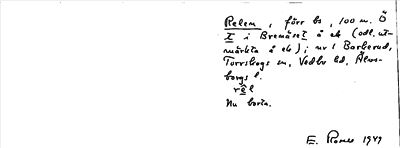 Relen, förr bs, 100 m. Ö
I i Bremäset å ek (odl. ut-
märkta å ek); nr 1 Barkerud,
Torrskogs sn, Vedbo hd, Älvs-
borgs l.
rêl
Nu borta.
E. Romes 1949